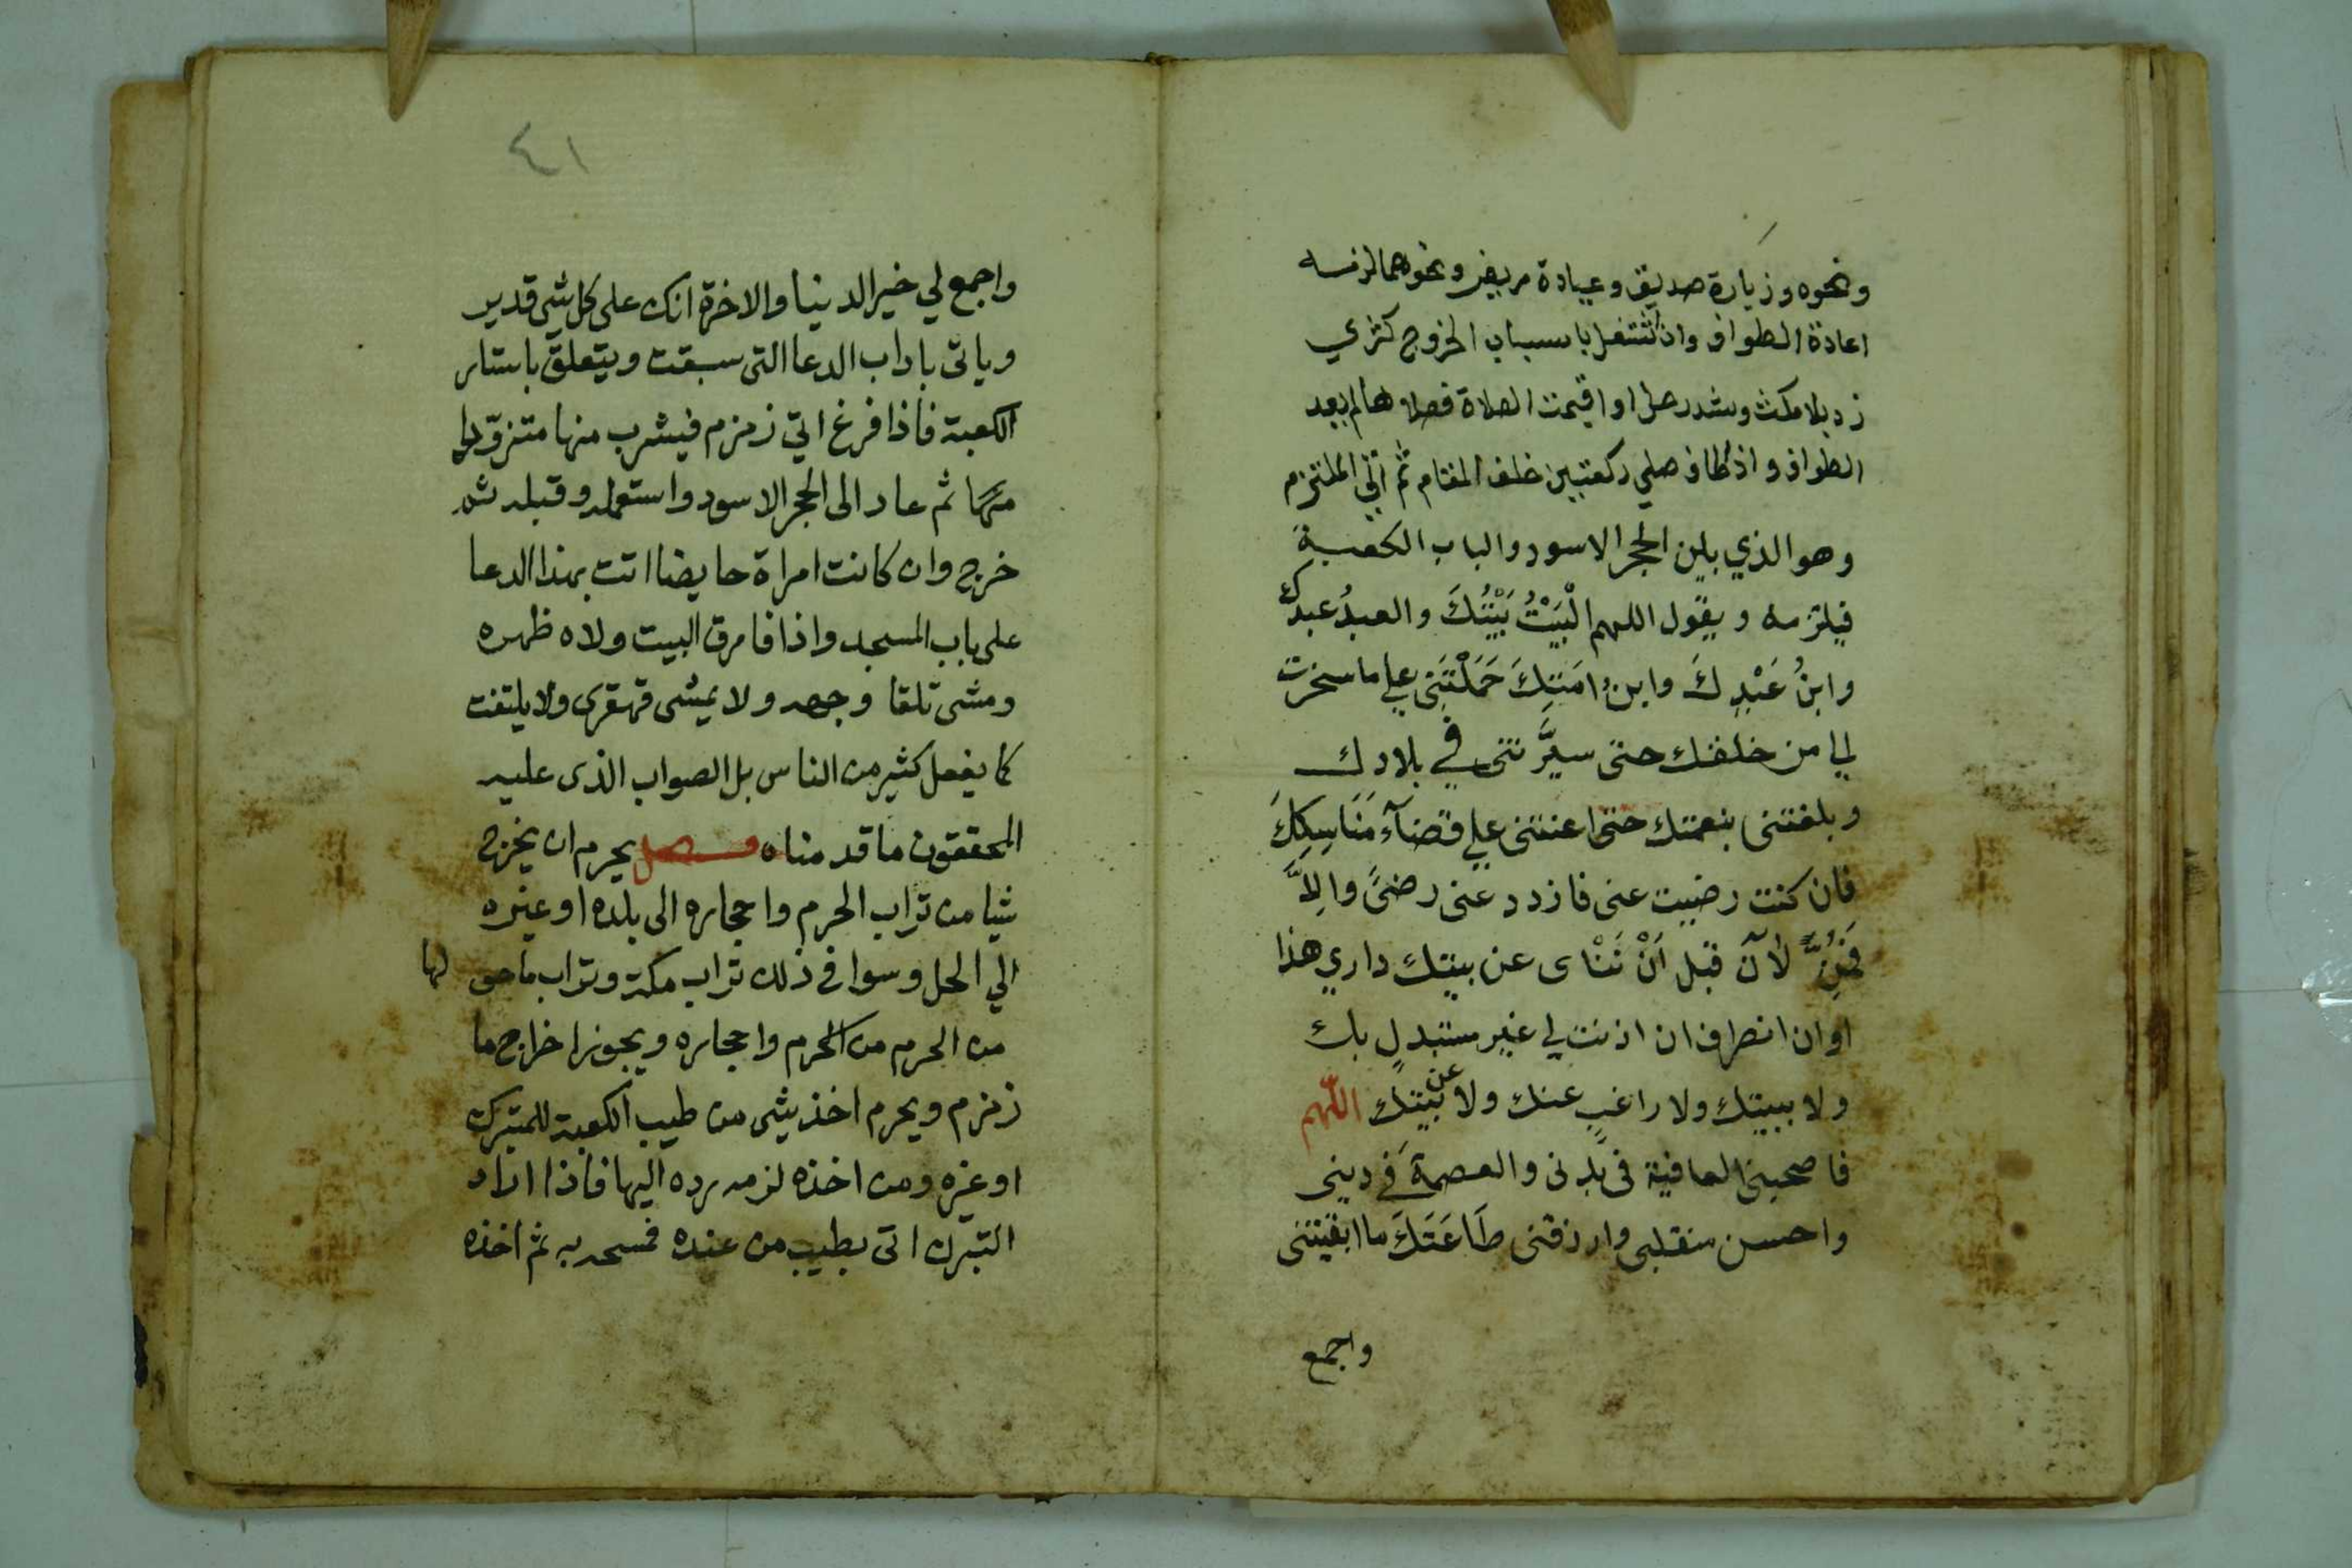 ونحوه وزيارة صديق وعيادة مريض ونحوهما لزمه
اعادة الطواف وان اشتغل باسباب الخروج كشري
زاد بلا مكث وشد رحل او اقيمت الصلاة فصلاها لم يعد
الطواف واذا طاف صلي ركعتين خلف المقام ثم اتي الملتزم
وهو الذي بلين الحجر الاسود والباب الكعبة
فيلتزمه ويقول اللهم الْبَيْتُ بَيْتُكَ والعبدُ عبدك
وابنُ عَبْدِكَ وابنُ امَتِكَ حَمَلْتَنِى علي ما سخرت
لي من خلقك حتى سيَّرتنى في بلادك
وبلغتنى بنعمتك حتى اعنتنى علي قضآءِ مَنَاسِكِكَ
فان كنت رضيت عنى فازدد عنى رضىً وَاِلَّا
فَمُنَّ لآن قبل اَنْ تَنْاى عن بيتك داري هذا
اوان انصرافى ان اذنت لي غير مستبدلٍ بك
ولا ببيتك ولا راغبٍ عنك ولا عن بيتك اللهم
فاصحبنى العافية فى بدنى والعصمة في دينى
واحسن منقلبى وارزقنى طَاعَتَكَ ما ابقيتنى
واجمع
٤١
واجمع لي خير الدينا والاخرة انك على كل شى قدير
وياتى باداب الدعا التى سبقت ويتعلق باستار
الكعبة فاذا فرغ اتي زمزم فيشرب منها متزوّدا
منها ثم عاد الى الحجر الاسود واستلمه وقبله ثم
خرج وان كانت امراة حايضا اتت بهذا الدعا
على باب المسجد واذا فارق البيت ولاه ظهره
ومشى تلقا وجهه ولا يمشى قهقرى ولا يلتفت
كما يفعل كثير من الناس بل الصواب الذى عليه
المحققون ما قدمناه فصل يحرم ان يخرج
شيا من تراب الحرم واحجاره الى بلده او غيره
الي الحل وسوا في ذلك تراب مكة وتراب ما حو لها
من الحرم من الحرم واحجاره ويجوز اخراج ما
زمزم ويحرم اخذ شى من طيب الكعبة للتبرك
او غيره ومن اخذه لزمه رده اليها فاذا اراد
التبرك اتى بطيب من عنده فمسحه به ثم اخذه